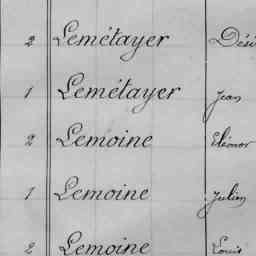 2 Lemétayer Dési
1 Lemétayer Jean
2 Lemoine Eléonor
1 Lemoine Julien
2 Lemoine Louis